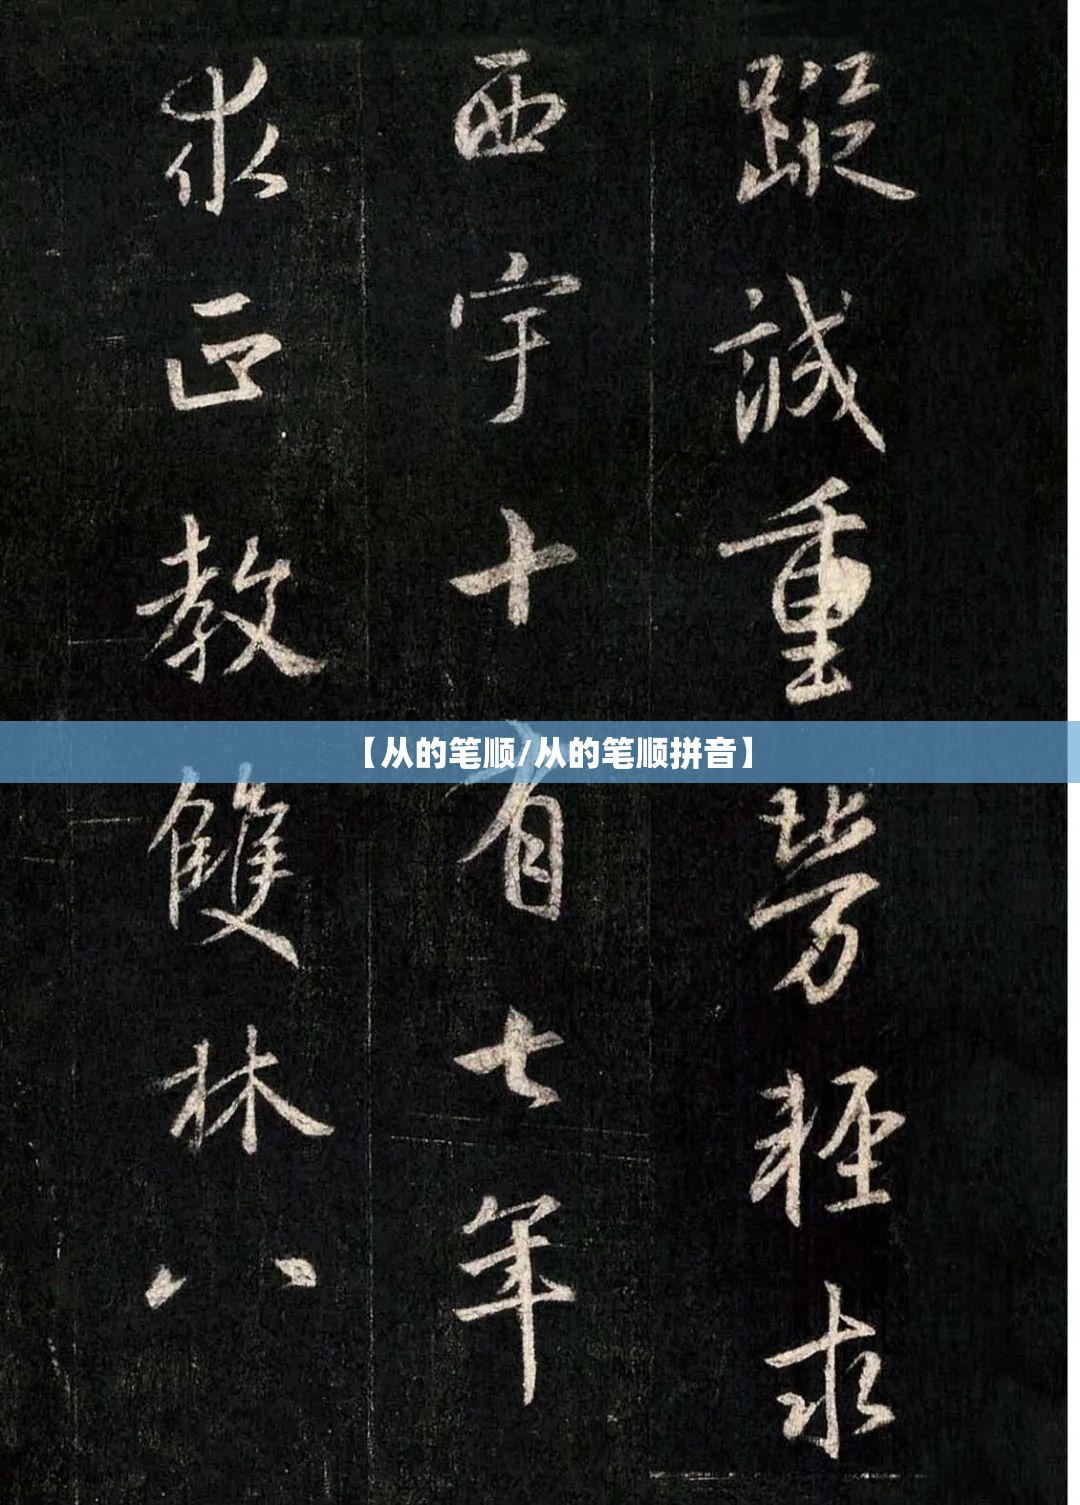 蹤誠重勞輕求
西宇十有七年
求正教雙林八
【从的笔顺/从的笔顺拼音】